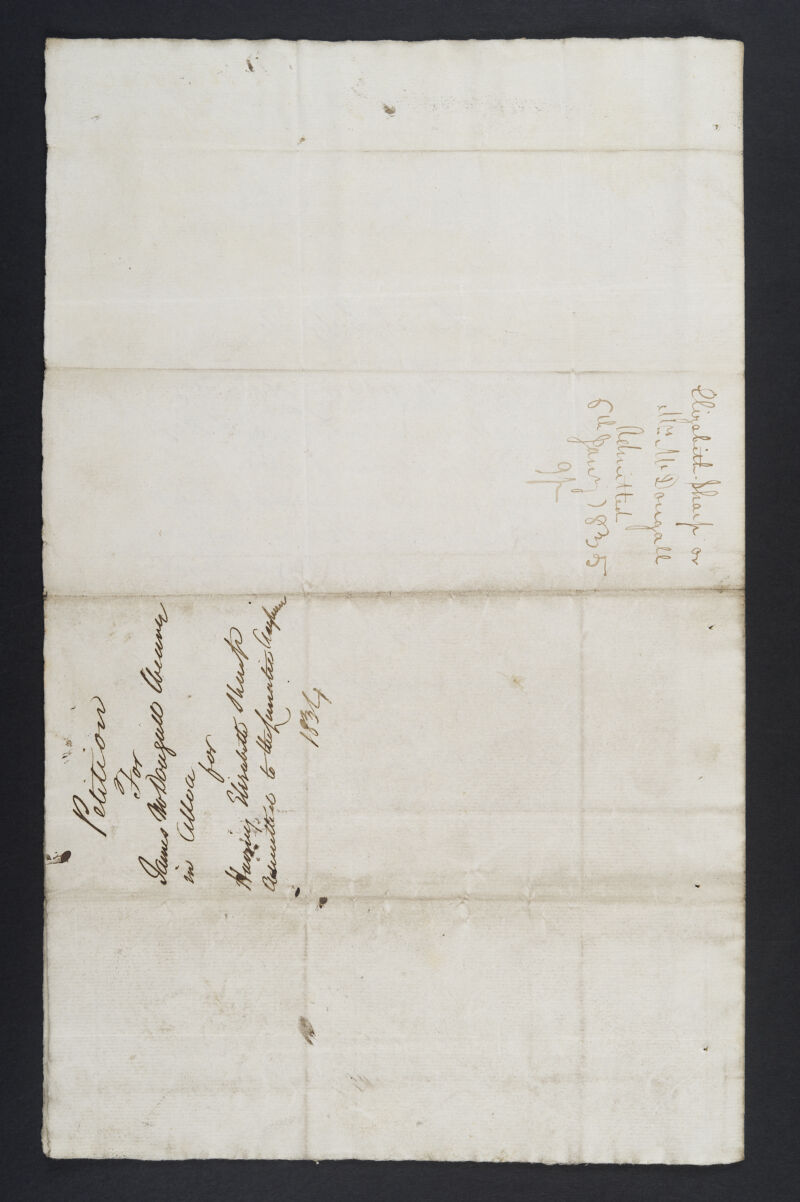 Petition
For
James McDougall Weaver
in Alloa
for
Having Elisabeth Sharp
Admitted to the Lunatic Asylum
1834
Elizabeth Sharp or
Mrs. McDougall
Admitted
5th Jany 1835